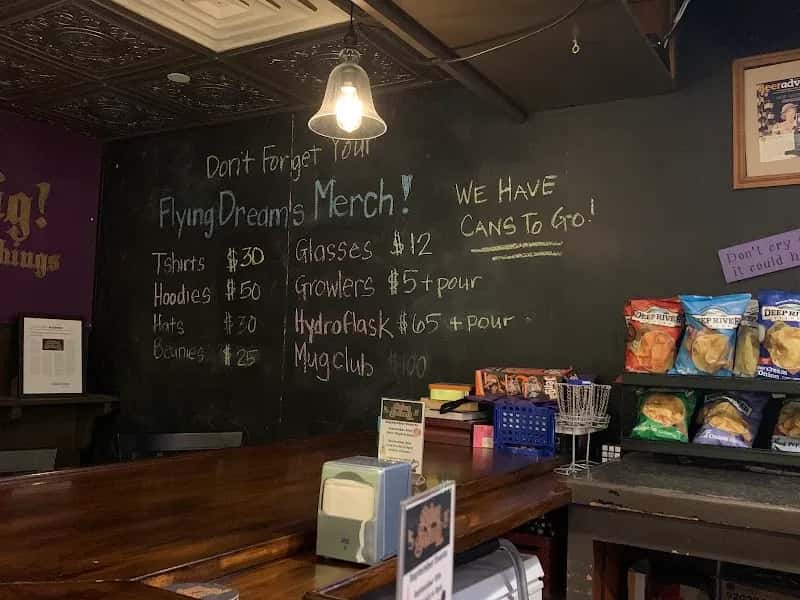 Don't Forget Your
FlyingDream's Merch!
Tshirts $30
Hoodies $50
Hats $30
Beanies $25
Glasses $12
Growlers $5 + pour
Hydroflask $65 + pour
Mugclub $100
WE HAVE
CANS TO GO!
ig!
hings
eeradv
Don't cry
it could h
DEEP RIVER
DEEP RIVER
DEEP RIV